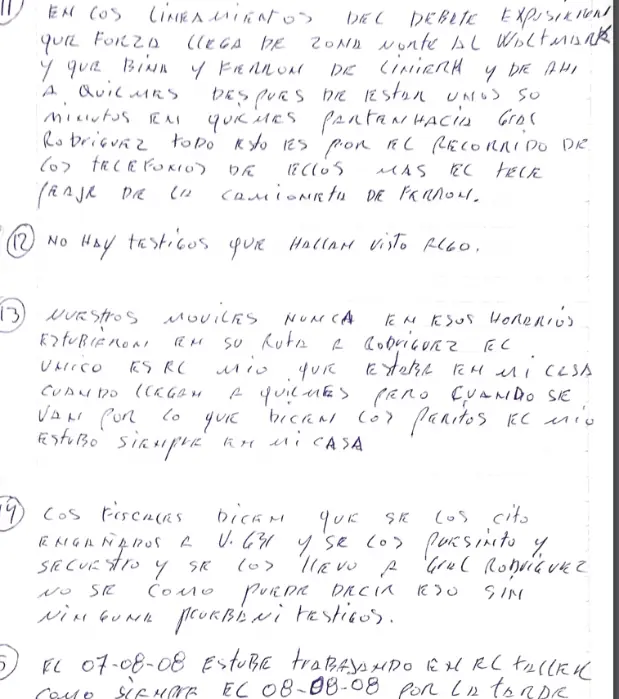 11 EN LOS LINEAMIENTOS DEL DEBATE EXPUSIERON
QUE FORZA LLEGA DE ZONA NORTE AL WALTMARK
Y QUE BINA Y FERRON DE LINIERH Y DE AHI
A QUILMES DESPUES DE ESTAR UNOS 50
MINUTOS EN QUILMES PARTEN HACIA GRAL
RODRIGUEZ TODO ESTO ES POR EL RECORRIDO DE
LOS TELEFONOS DE ELLOS MAS EL TELE
PEAJE DE LA CAMIONETA DE FERRON.
12 NO HAY TESTIGOS QUE HALLAN VISTO ALGO.
13 NUESTROS MOVILES NUNCA EN ESOS HORARIOS
ESTUBIERON EN SU RUTA A RODRIGUEZ EL
UNICO ES EL MIO QUE ESTABA EN MI CASA
CUANDO LLEGAN A QUILMES PERO CUANDO SE
VAN POR LO QUE DICEN LOS PERITOS EL MIO
ESTUBO SIEMPRE EN MI CASA
14 LOS FISCALES DICEN QUE SE LOS CITO
ENGAÑADOS A U. GRL Y SE LOS
SECUESTRO Y SE LOS LLEVO A GRAL RODRIGUEZ
NO SE COMO PUEDE DECIR ESO SIN
NINGUNA PRUEBA NI TESTIGOS.
5 EL 07-08-08 ESTUBE TRABAJANDO EN EL TALLER
COMO SIEMPRE EL 08-08-08 POR LA TARDE